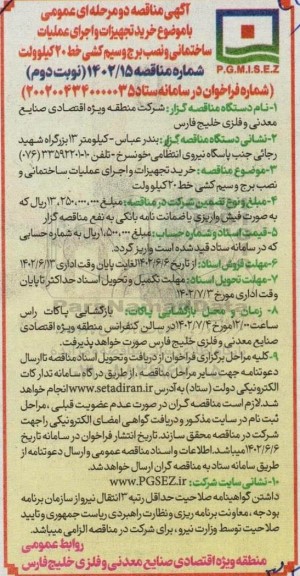 آگهی مناقصه دو مرحله ای عمومی
با موضوع خرید تجهیزات و اجرای عملیات
ساختمانی و نصب برج و سیم کشی خط ۲۰ کیلوولت
شماره مناقصه ۱۴۰۲/۱۵ (نوبت دوم)
(شماره فراخوان در سامانه ستاد ۲۰۰۲۰۰۴۳۴۰۰۰۰۰۳۵)
P.G.M.I.S.E.Z
۱-نام دستگاه مناقصه گزار: شرکت منطقه ویژه اقتصادی صنایع
معدنی و فلزی خلیج فارس
۲-نشانی دستگاه مناقصه گزار: بندر عباس - کیلومتر ۱۳ بزرگراه شهید
رجائی جنب پاسگاه نیروی انتظامی خونسرخ - تلفن ۱۰-۳۳۵۹۲۲۰۱ (۰۷۶)
۳-موضوع مناقصه: خرید تجهیزات و اجرای عملیات ساختمانی و
نصب برج و سیم کشی خط ۲۰ کیلوولت
۴-مبلغ و نوع تضمین شرکت در مناقصه: مبلغ ۱۳،۲۵۰،۰۰۰،۰۰۰ ریال که
به صورت فیش واریزی یا ضمانت نامه بانکی به نفع مناقصه گزار
۵-قیمت اسناد و شماره حساب: مبلغ ۱،۵۰۰،۰۰۰ ریال به شماره حسابی
که در سامانه ستاد قید شده است واریز گردد.
۶-مهلت فروش اسناد: از تاریخ ۱۴۰۲/۶/۶ لغایت پایان وقت اداری ۱۴۰۲/۶/۱۳
۷-مهلت تحویل اسناد: مهلت تکمیل و تحویل اسناد حداکثر تا پایان
وقت اداری مورخ ۱۴۰۲/۷/۳
۸- زمان و محل بازگشائی پاکات: بازگشایی پاکات راس
ساعت ۱۲/۰۰ مورخ ۱۴۰۲/۷/۴ در سالن کنفرانس منطقه ویژه اقتصادی
صنایع معدنی و فلزی خلیج فارس صورت خواهد پذیرفت.
۹-کلیه مراحل برگزاری فراخوان از دریافت و تحویل اسناد مناقصه تا ارسال
دعوتنامه جهت سایر مراحل مناقصه ، از طریق درگاه سامانه تدارکات
الکترونیکی دولت (ستاد) به آدرس www.setadiran.ir انجام خواهد
شد. لازم است مناقصه گران در صورت عدم عضویت قبلی ، مراحل
ثبت نام در سایت مذکور و دریافت گواهی امضای الکترونیکی را جهت
شرکت در مناقصه محقق سازند. تاریخ انتشار فراخوان در سامانه تاریخ
۱۴۰۲/۶/۶ میباشد. اطلاعات و اسناد مناقصه عمومی و ارسال دعوتنامه از
طریق سامانه ستاد به مناقصه گران ارسال خواهد شد.
۱۰-نشانی سایت شرکت: www.PGSEZ.ir
داشتن گواهینامه صلاحیت حداقل رتبه ۳ انتقال نیرو از سازمان برنامه
بودجه ، معاونت برنامه ریزی و نظارت راهبردی ریاست جمهوری و تایید
صلاحیت توسط وزارت نیرو ، برای شرکت در مناقصه الزامی میباشد.
روابط عمومی
منطقه ویژه اقتصادی صنایع معدنی و فلزی خلیج فارس